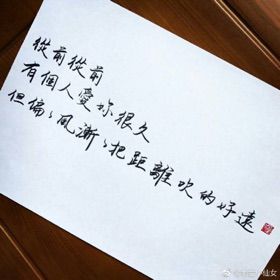 從前從前
有個人愛妳很久
但偏偏風漸漸把距離吹的好遠